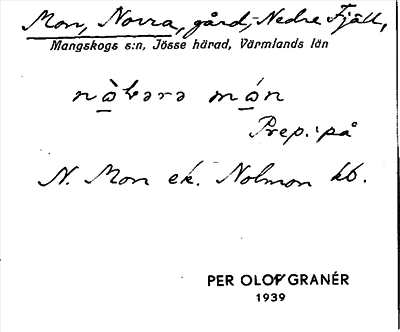 Mon, Norra, gård, Nedre Fjäll,
Mangskogs s:n, Jösse härad, Värmlands län
nạ̀bərə mạ́n
Prep.: på
N. Mon ek. Nolmon kb.
PER OLOF GRANÉR
1939